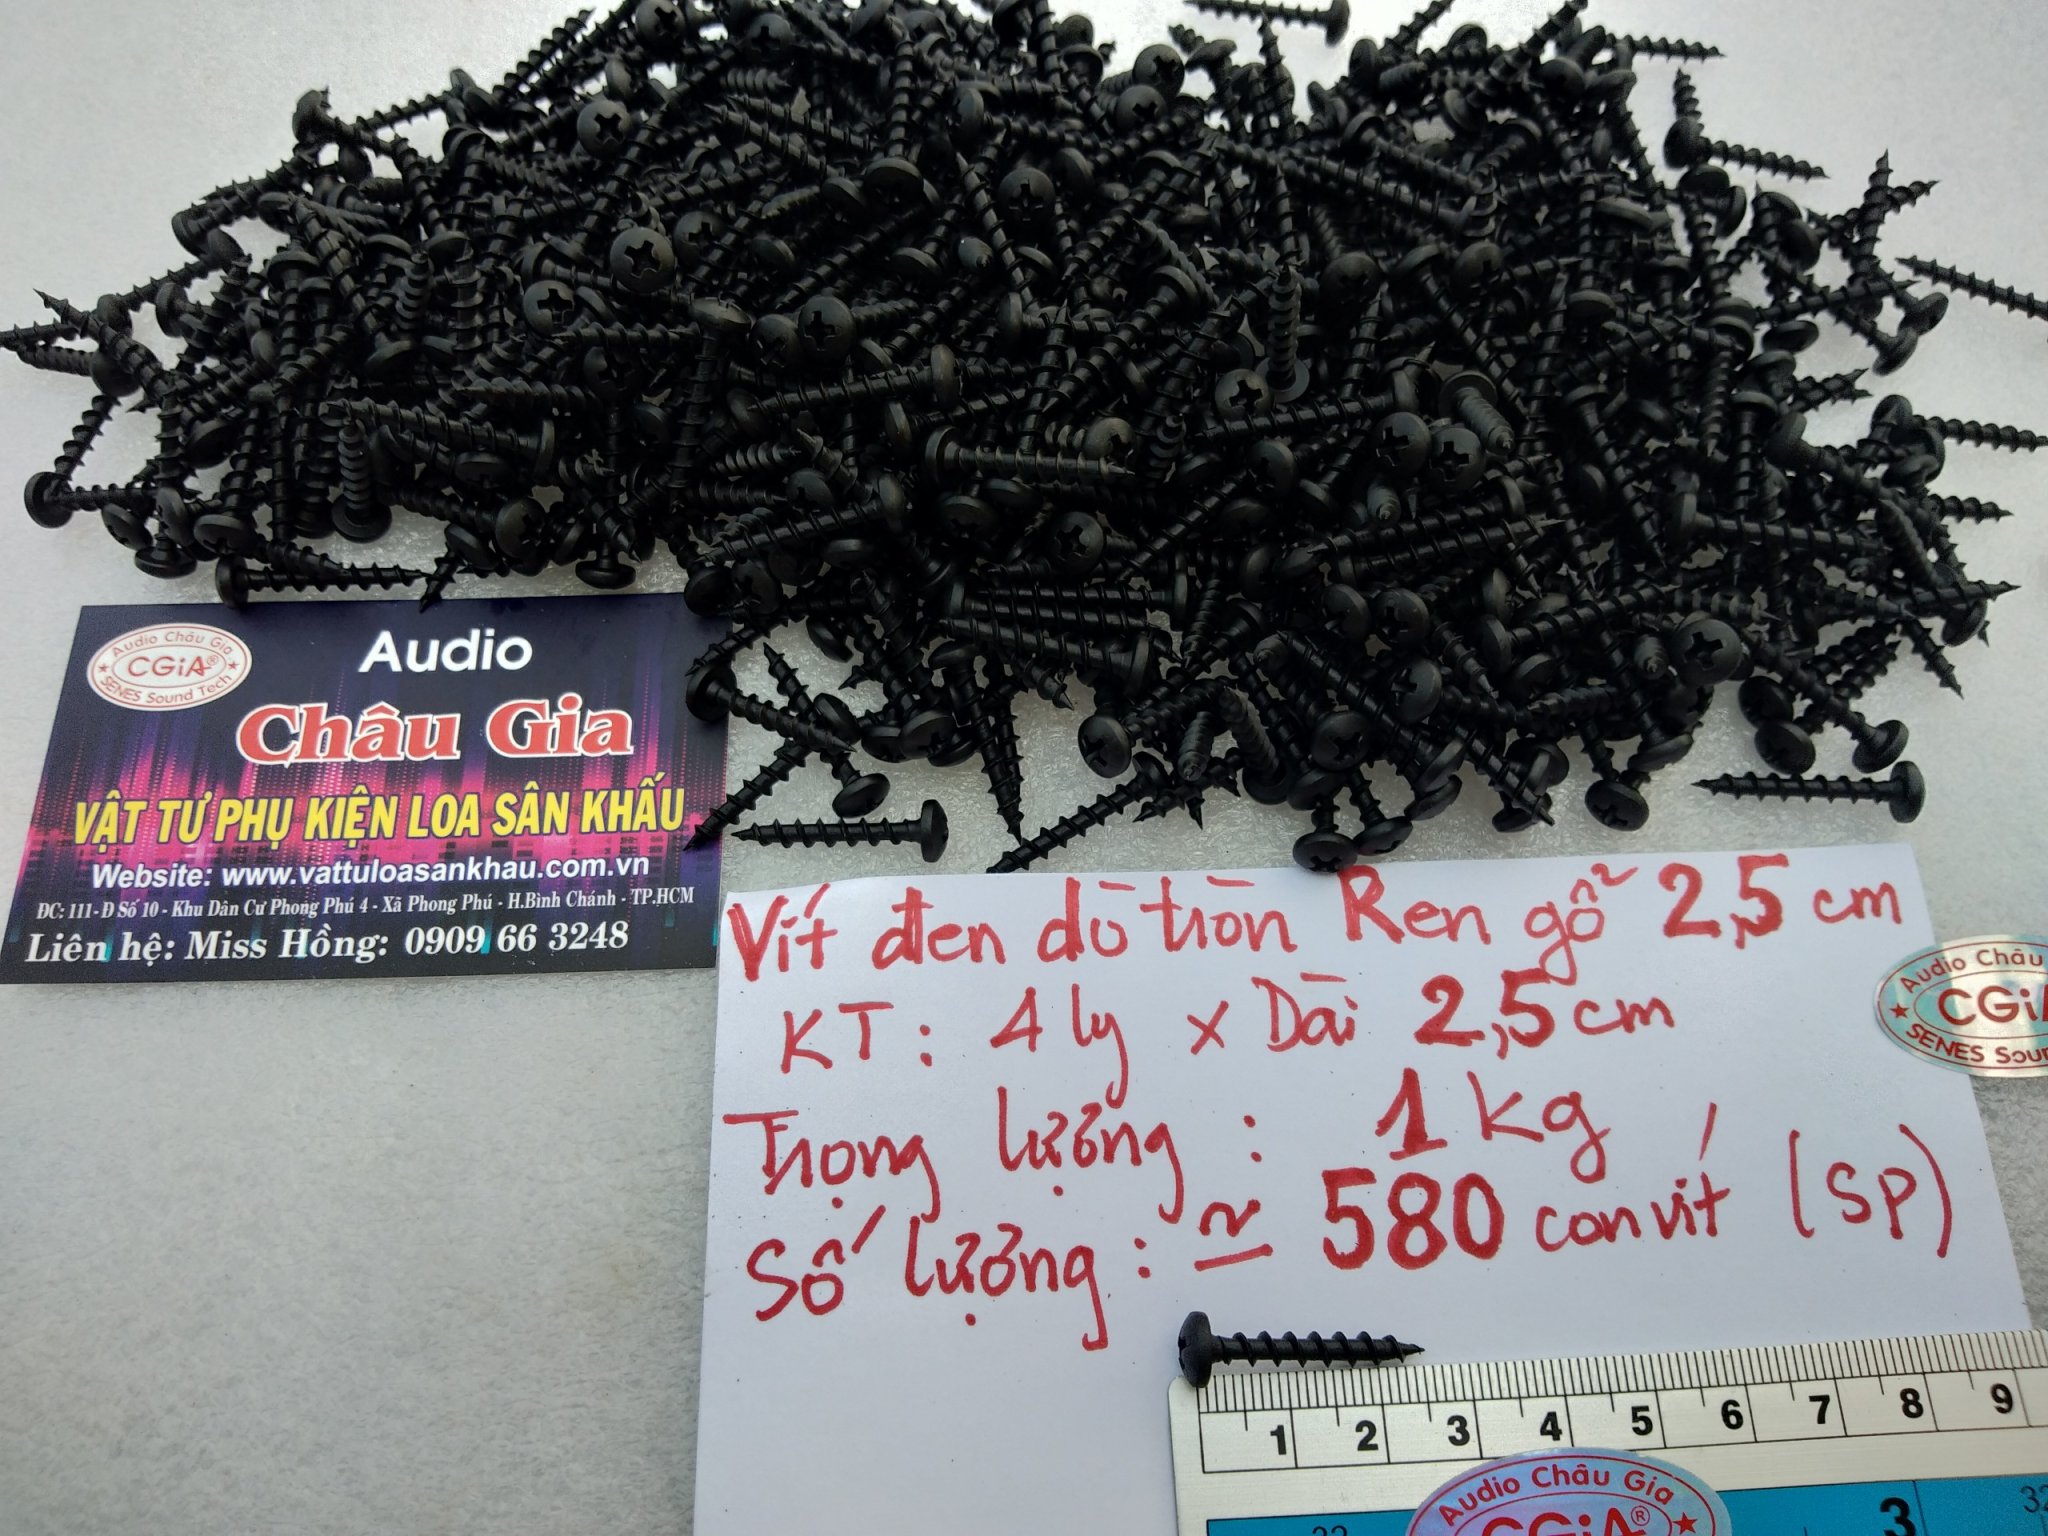 Audio Châu Gia
CGiA®
SENES Sound Tech
Audio
Châu Gia
VẬT TƯ PHỤ KIỆN LOA SÂN KHẤU
Website: www.vattuloasankhau.com.vn
ĐC: 111-Đ Số 10 - Khu Dân Cư Phong Phú 4 - Xã Phong Phú - H.Bình Chánh - TP.HCM
Liên hệ: Miss Hồng: 0909 66 3248
Vít đen dù tròn Ren gỗ 2,5 cm
KT: 4 ly x Dài 2,5 cm
Trọng lượng: 1 kg
Số lượng: ≃ 580 con vít (SP)
Audio Châu
CGiA
SENES Soun
1 2 3 4 5 6 7 8 9
Audio Châu Gia
CGiA®
3
32